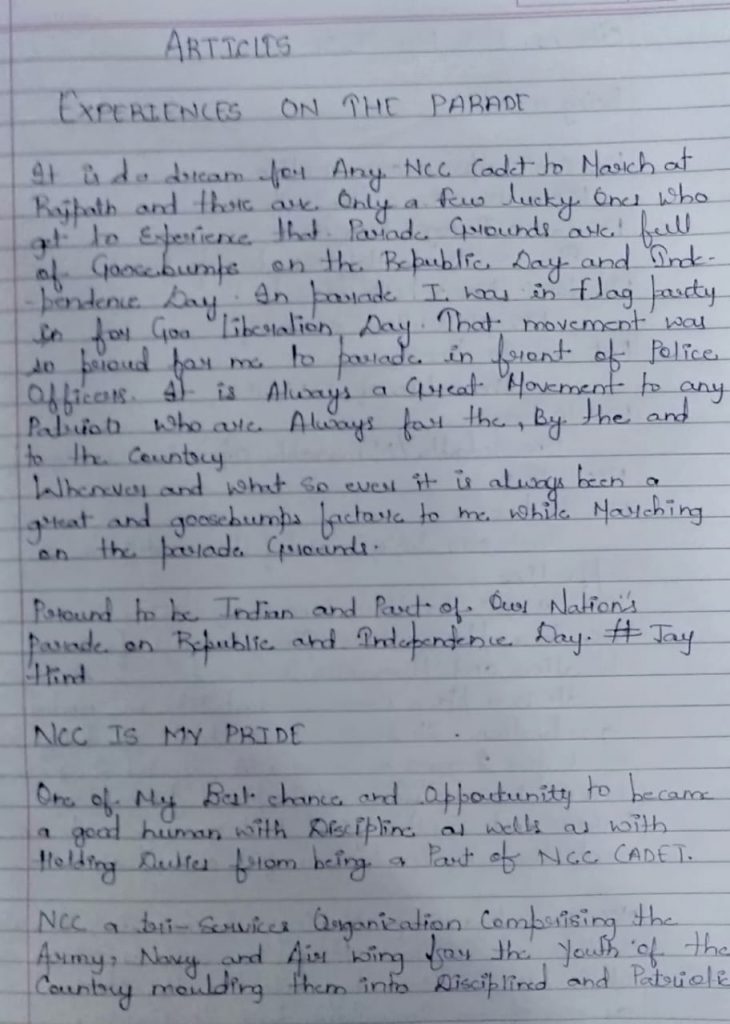 ARTICLES
EXPERIENCES ON THE PARADE
It is do dream for Any NCC Cadet to March at
Rajpath and there are Only a few lucky Ones Who
get to Experience that Parade Grounds are full
of Goosebumps on the Republic Day and Inde-
-pendence Day. In parade I was in flag party
in for Goa Liberation Day. That movement was
so proud for me to parade in front of Police
Officers. It is Always a Great Movement to any
Patriots Who are Always for the, By the and
to the Country
Whenever and what so ever it is always been a
great and goosebumps factore to me while Marching
on the parade Grounds.
Poround to be Indian and Part of Our Nation's
Parade on Republic and Independence Day. # Jay
Hind
NCC IS MY PRIDE
One of My Best chance and Opportunity to became
a good human with Discipline as wells as with
Holding Duties from being a Part of NCC CADET.
NCC a tri-Services Organization Comprising the
Army, Navy and Air wing for the Youth of the
Country moulding them into Disciplined and Patriotic